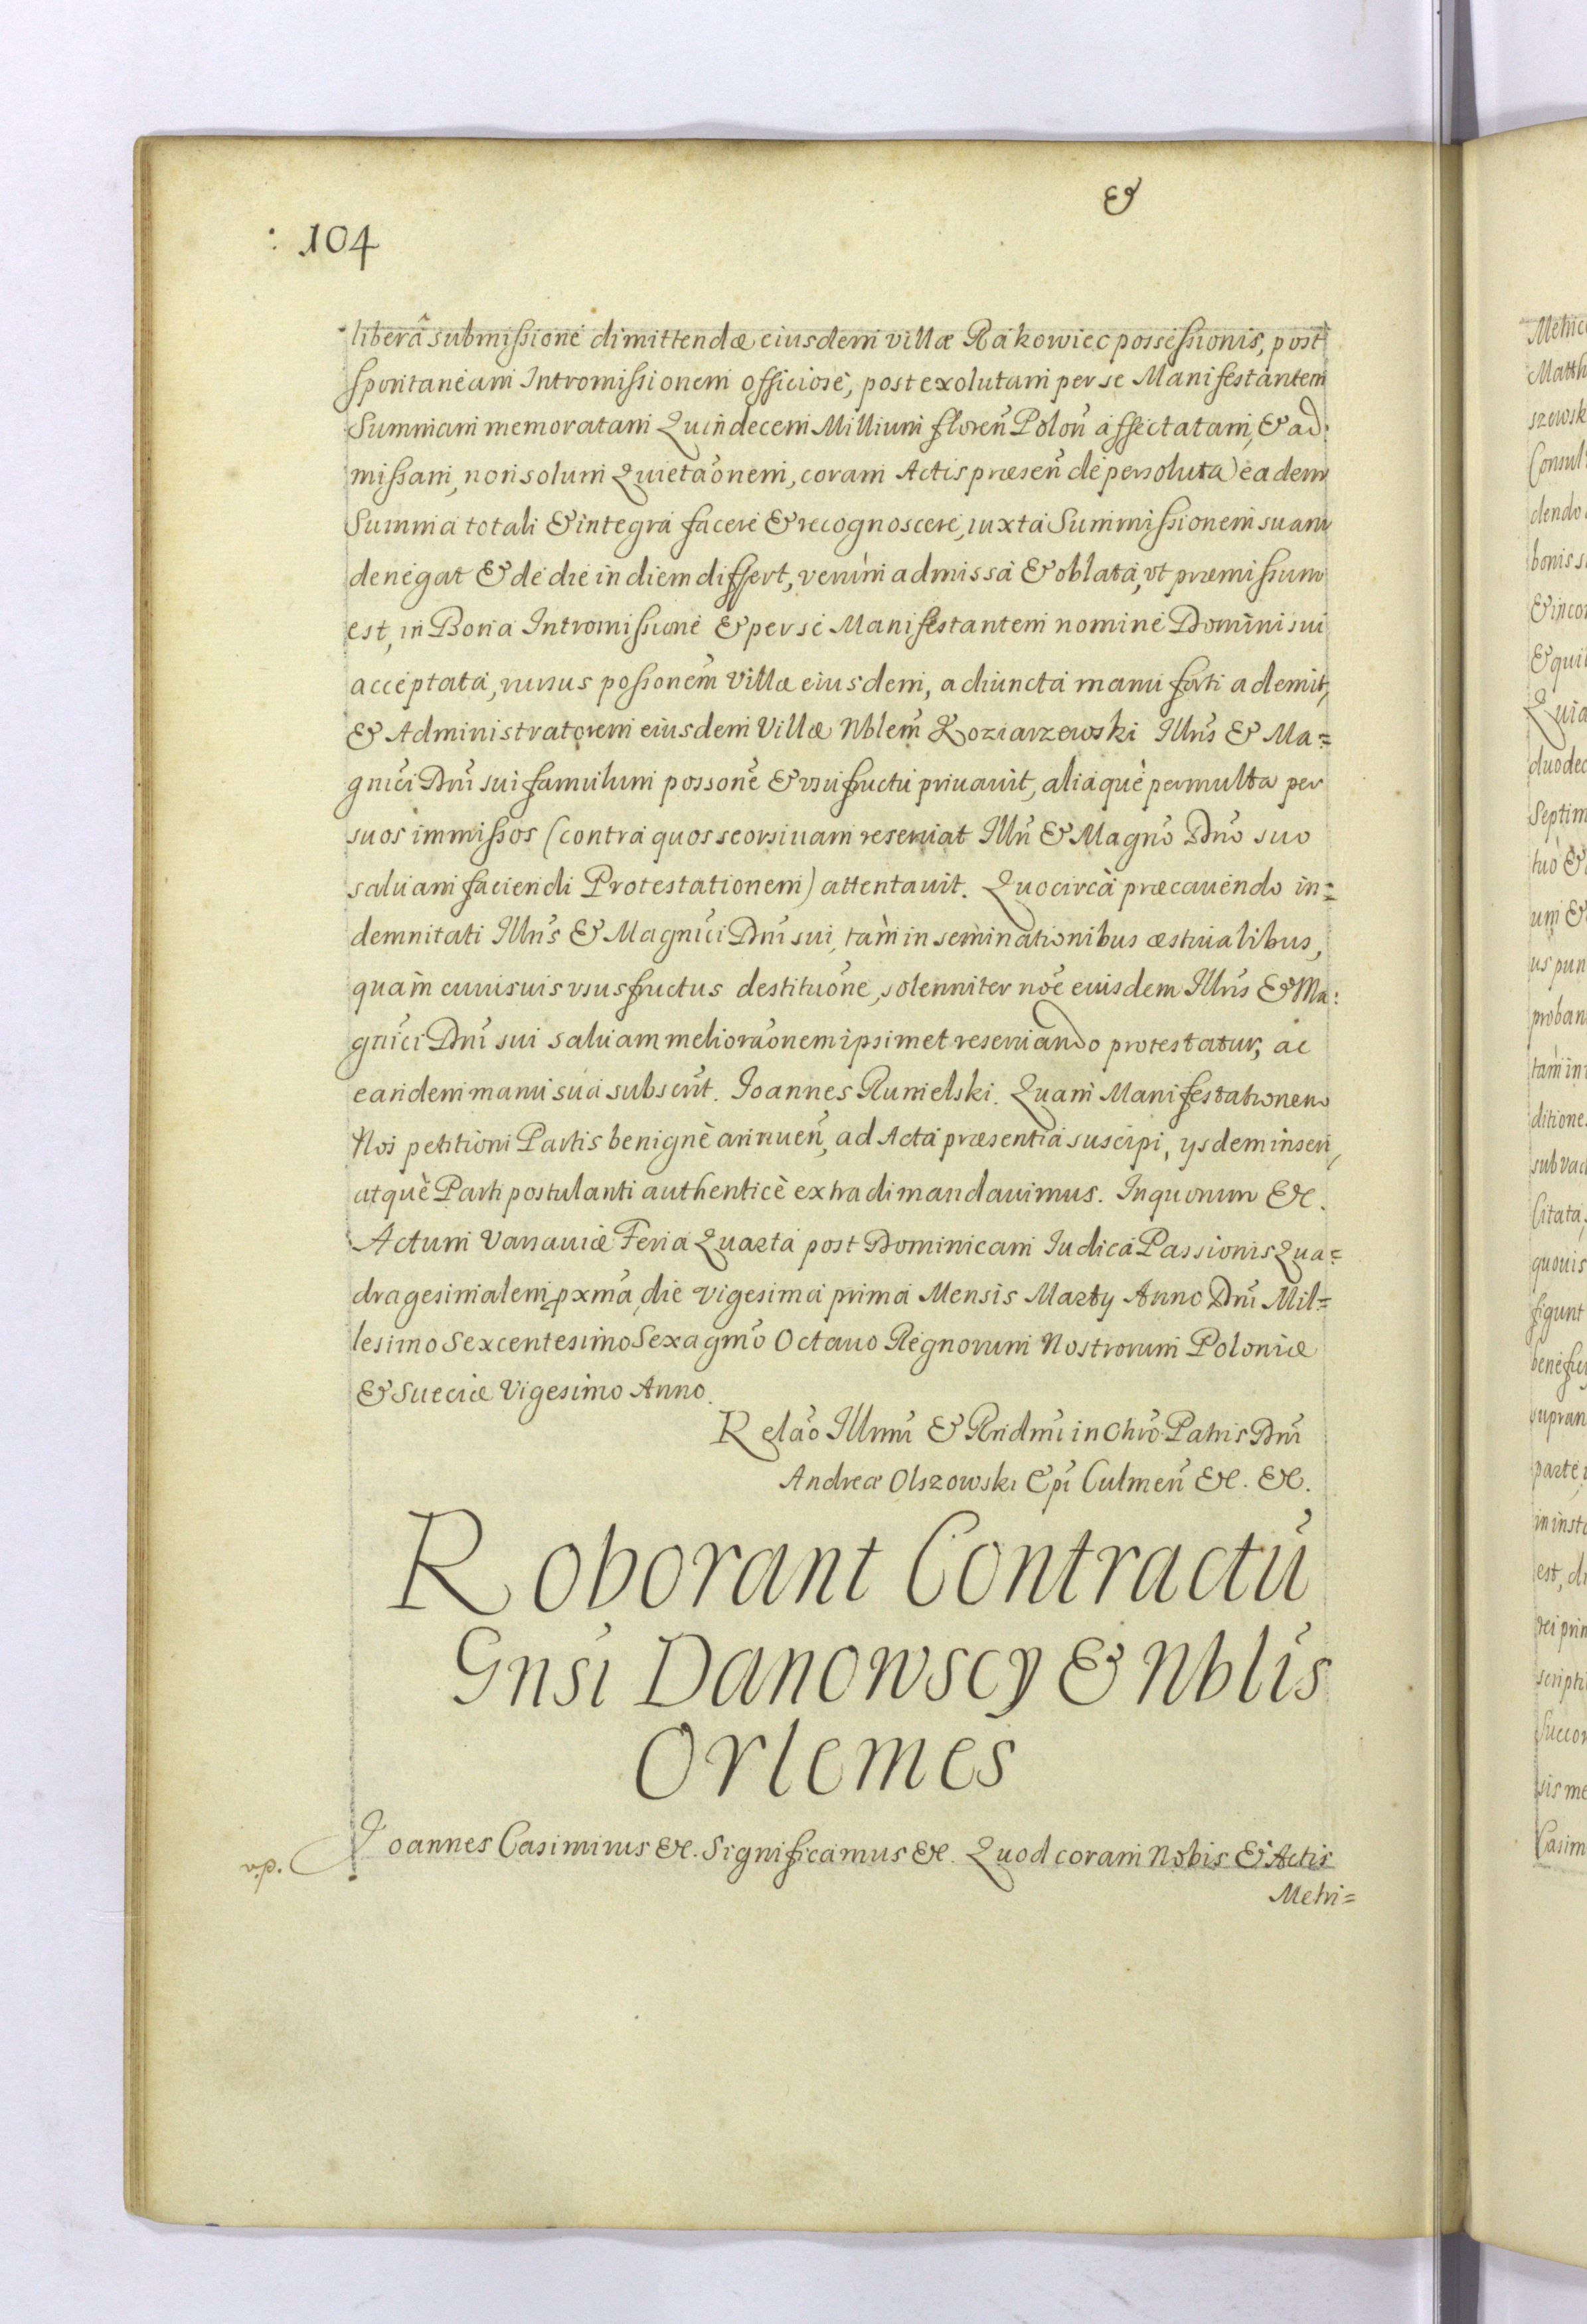 &
: 104
liberâ submissione dimittendæ eiusdem villæ Rakowiec possessionis, post
spontaneam Intromissionem officiose, post exolutam per se Manifestantem
Summam memoratam Quindecem Millium floren̄ Polon̄ affectatam, & ad:
missam, non solum Quieta͠onem, coram Actis præsen̄ de persoluta eadem
Summa totali & integra facere & recognoscere, iuxta Summissionem suam
denegat & de die in diem differt, verùm admissa & oblata, vt præmissum
est, in Bona Intromissione & per se Manifestantem nomine Domini sui
acceptata, rursus possionem̄ Villæ eiusdem, adiuncta manu forti ademit,
& Administratorem eiusdem Villæ Nblem̄ Koziarzewski Illrīs & Ma=
gnīci Dnī sui famulum possonē & vsufructu priuauit, aliaquè permulta per
suos immissos (contra quos seorsiuam reseruat Illrī & Magnō Dnō suo
saluam faciendi Protestationem) attentauit. Quocircà præcauendo in=
demnitati Illrīs & Magnīci Dnī sui, tàm in seminationibus æstiualibus,
quàm cuiusuis vsusfructus destituōne, solenniter noē eiusdem Illrīs & Ma:
gnīci Dnī sui saluam meliora͠onem ipsimet reseruando protestatur, ac
eandem manu sua subscrīt. Ioannes Rumelski. Quam Manifestationem
Nos petitioni Partis benignè annuen̄, ad Acta præsentia suscipi, ysdem inseri,
atquè Parti postulanti authenticè extradi mandauimus. In quorum &c.
Actum Varsauiæ Feria Quarta post Dominicam Iudica Passionis Qua=
dragesimalem pxmā, die vigesima prima Mensis Marty Anno Dnī Mil=
lesimo Sexcentesimo Sexagmō Octauo Regnorum Nostrorum Poloniæ
& Sueciæ Vigesimo Anno.
Relaō Illmī & Rndmī in Chrō Patris Dnī
Andreæ Olszowski Epī Culmen̄ &c. &c.
Roborant Contractū
Gnsī Danowscy & Nblīs
Orlemes
v.p. Ioannes Casimirus &c. Significamus &c. Quod coram Nobis & Actis
Metri=